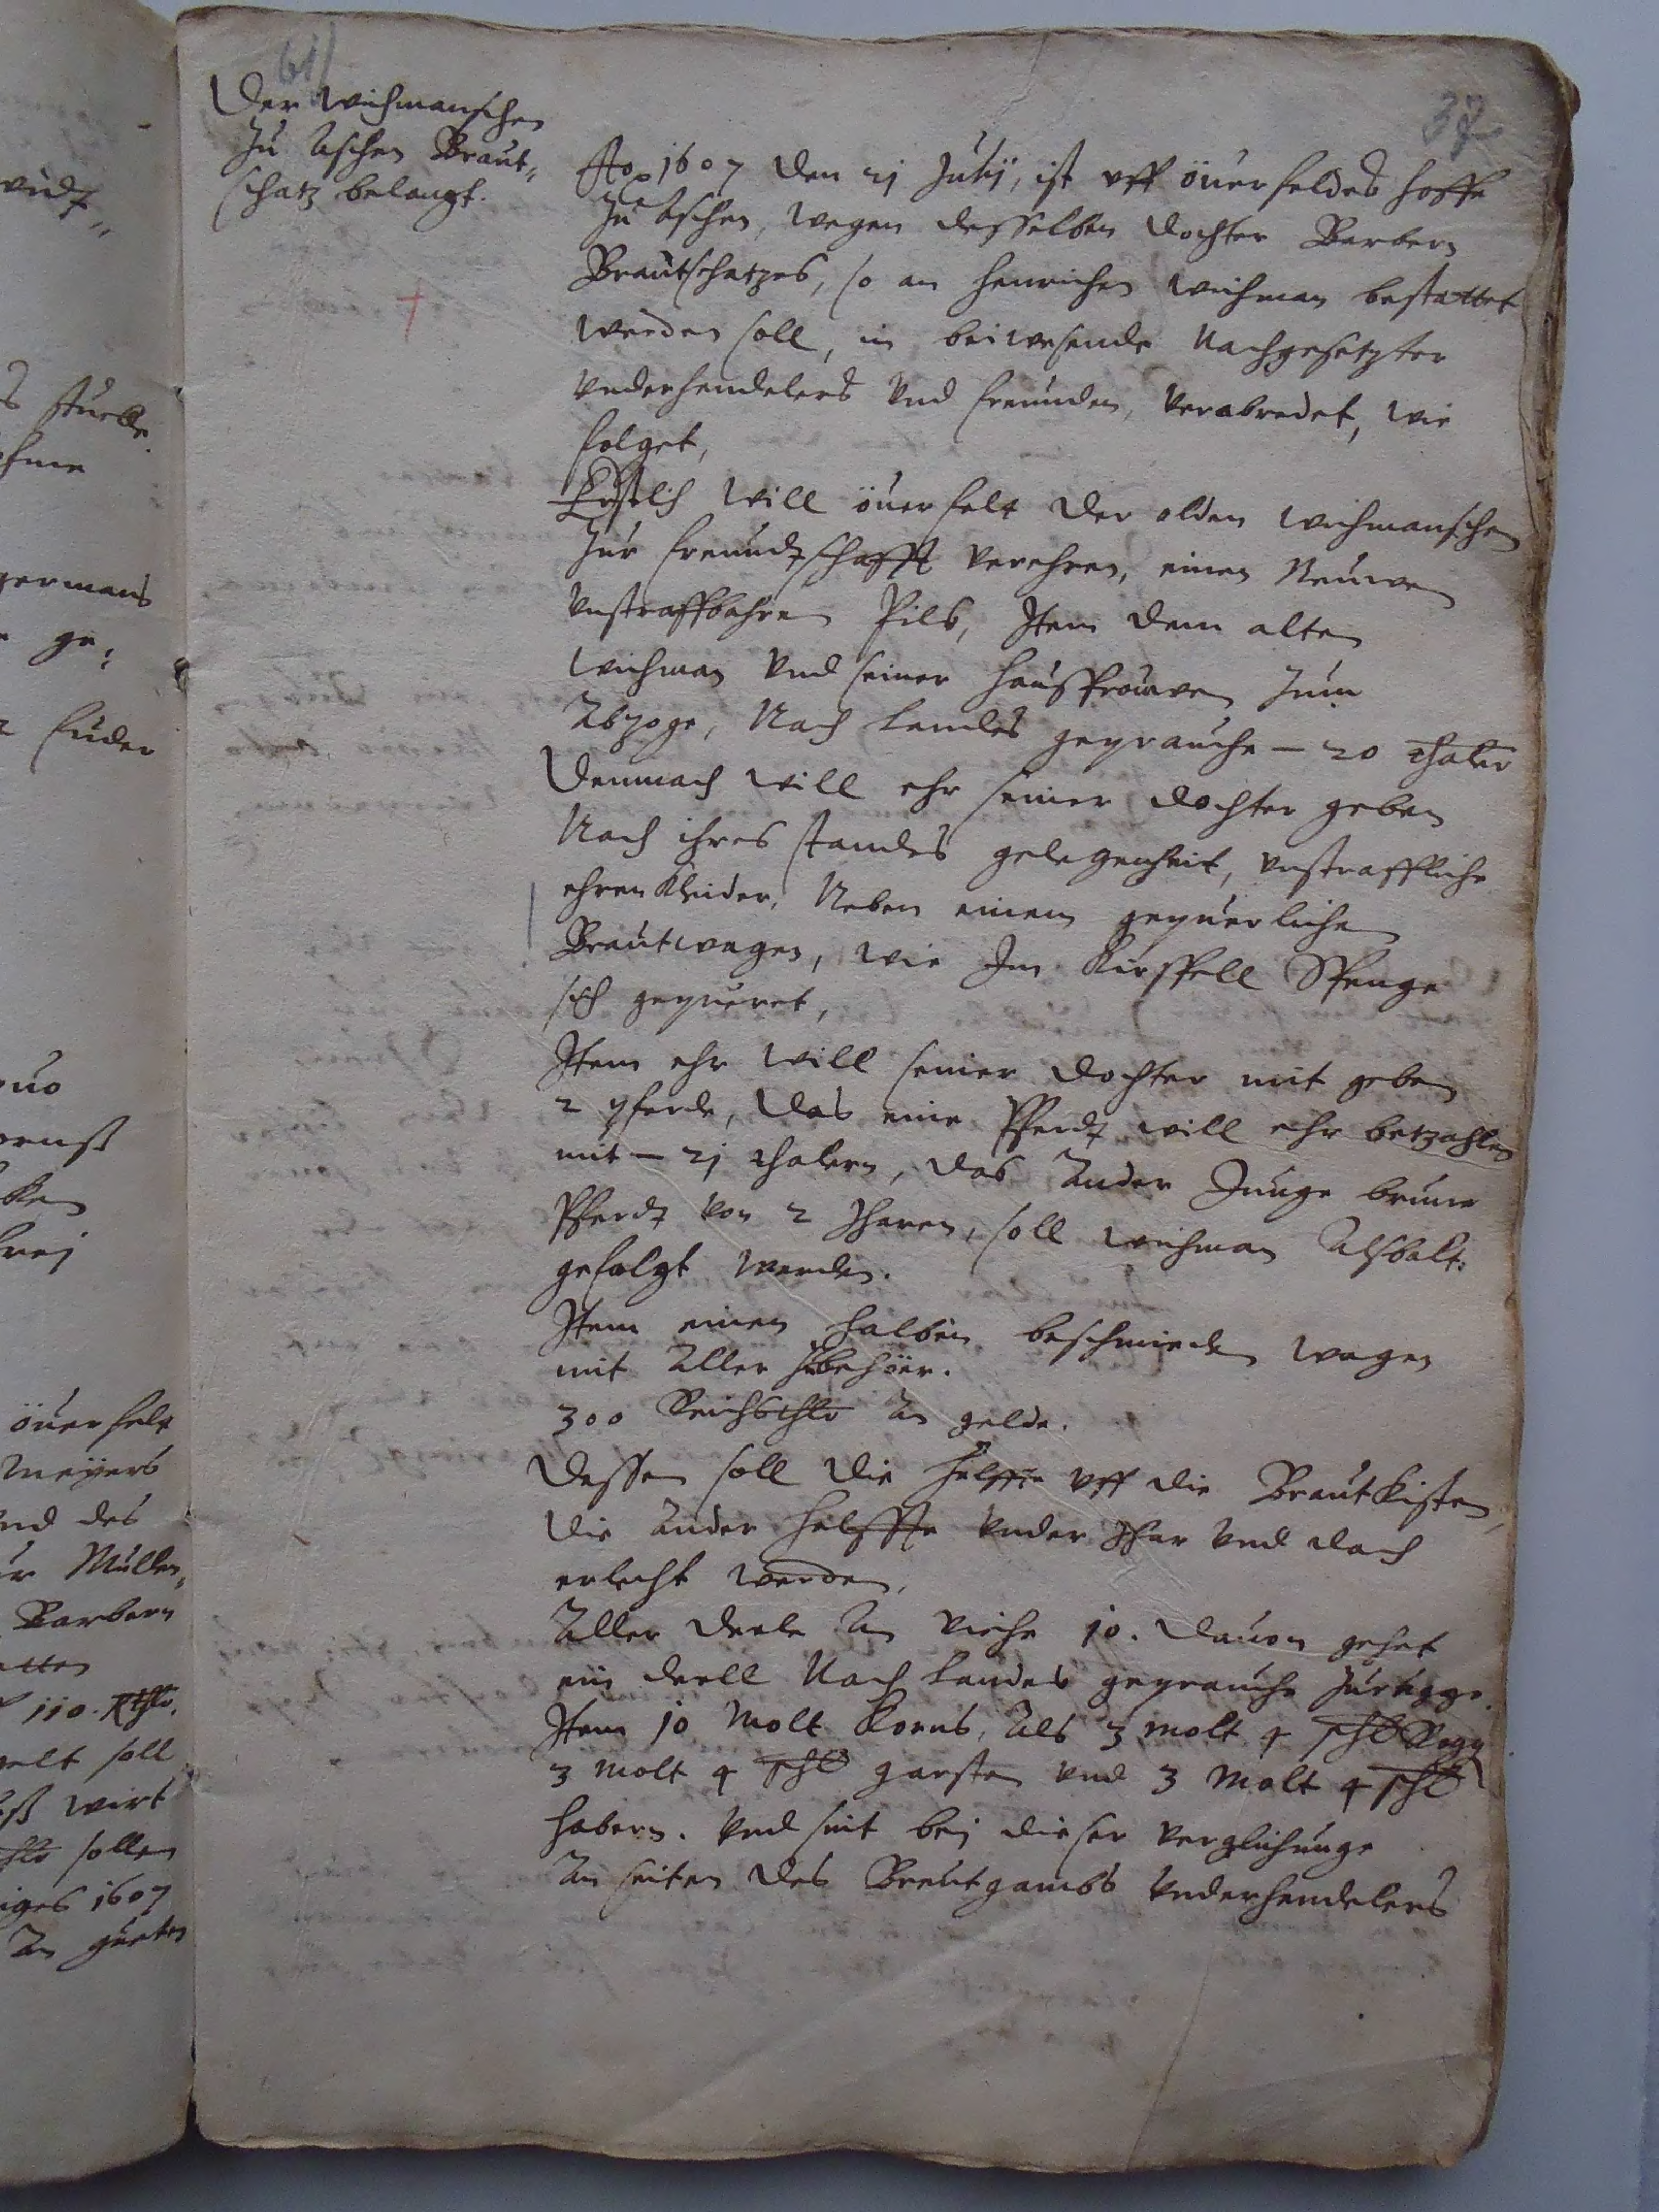 61)
37
Der Wichmanschen
zu Aschen Braut„
schatz belangt.
Ao 1607 den 21 Julij, ist vff öuerfeldes hoffe
zu Aschen, wegen desselben dochter Barbern
Brautschatzes, so an Henrichen Wichman bestattet
werden soll, in beiwesende Nachgesetzter
vnderhendelers vnd freunden, verabredet, wie
folget,
Erstlich will öuerfelt der olden Wichmanschen
zur freundtschafft verehren, einen Neuwen
vnstraffbahren Pils, Item dem alten
Wichman vnd seiner haussfrouwen zum
Abzoge, Nach Landes geprauche – 20 thaler
Demnach will ehr seiner dochter geben
Nach ihres standes gelegenheit, vnstraffliche
ehrenkleider, Neben einem gepuerlichen
Brautwagen, wie Im Kirspell Spenge
sich gepueret,
Item ehr will seiner dochter mit geben
2 pferde, das eine Pferdt will ehr betzahlen
mit – 21 thalern, das ander Junge brune
Pferdt von 2 Jharen, soll Wichman alsbalt
gefolgt werden.
Item einen halben beschmieden wagen
mit aller zubehöer.
300 Reichsthlr an gelde.
Dessen soll die helffte vff die Brautkisten,
die ander helffte vnder Jhar vnd dach
erlecht werden,
Aller deele an viehe 10. dauon gehet
ein deell Nach Landes geprauche zurugge.
Item 10 Molt Korns, als 3 molt 4 schl Rogg
3 molt 4 schl garsten vnd 3 Molt 4 schl
habern. vnd seit bei dieser verglichunge
an seiten des Breutgambs vnderhendelers
öuerfelt
Meÿers
nd des
Mullen„
Barbern
110 Rthlr.
soll
wirt
sollen
1607
An gueten
fuder
germans
ge„